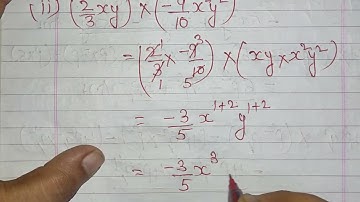 (ii) (2/3 xy) × (-9/10 x²y²)
= (2̶¹/3̶₁ × -9̶³/1̶0̶₅) × (xy × x²y²)
= -3/5 x¹⁺² y¹⁺²
= -3/5 x³